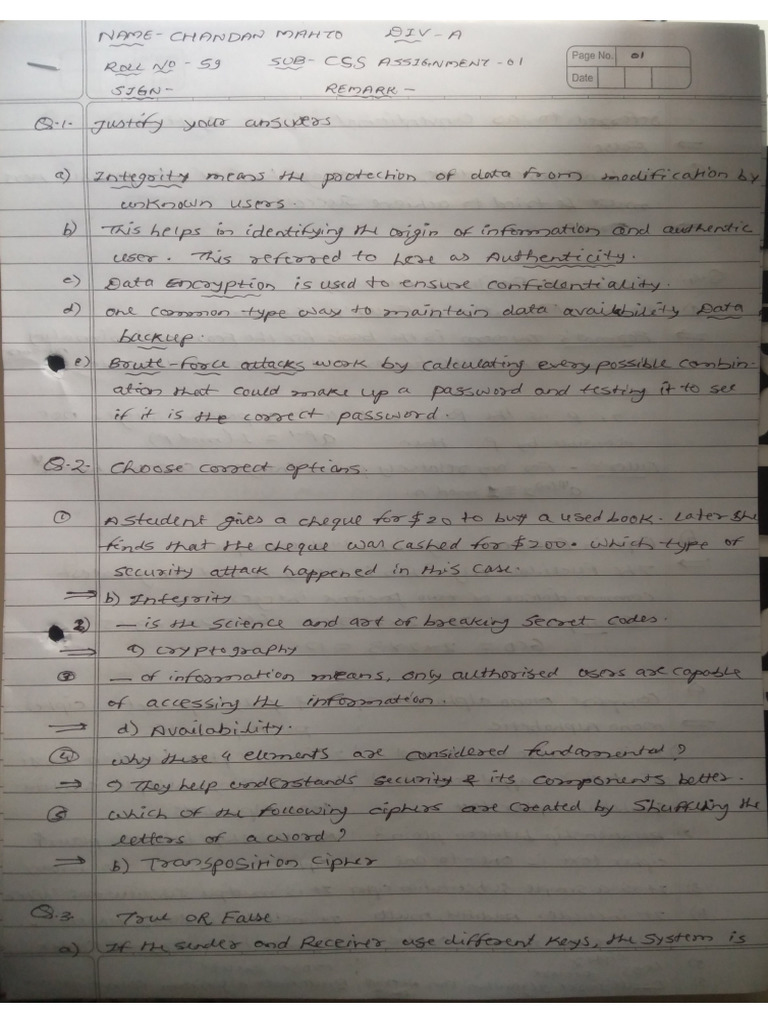 NAME- CHANDAN MAHTO DIV-A
ROLL NO - 59 SUB- CSS ASSIGNMENT-01
Page No. 01
Date
SIGN- REMARK-
Q.1. Justify your answers
a) Integrity means the protection of data from modification by
unknown users.
b) This helps in identifying the origin of information and authentic
user. This referred to here as Authenticity.
c) Data Encryption is used to ensure confidentiality.
d) one common type way to maintain data availability Data
backup.
e) Brute-force attacks work by calculating every possible combin-
ation that could make up a password and testing it to see
if it is the correct password.
Q.2. Choose correct options.
① A student gives a cheque for $20 to buy a used book. Later she
finds that the cheque was cashed for $200. which type of
security attack happened in this case.
⇒ b) Integrity
2) — is the science and art of breaking secret codes.
⇒ a) cryptography
③ — of information means, only authorised users are capable
of accessing the information.
⇒ d) Availability.
④ why these 4 elements are considered fundamental?
⇒ They help understands security & its components better.
⑤ which of the following ciphers are created by Shuffling the
letters of a word?
⇒ b) Transposition Cipher
Q.3. True OR False.
a) If the sender and Receiver use different keys, the system is